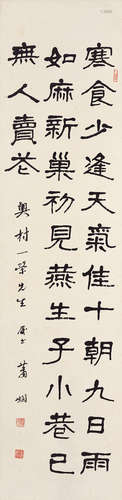 寒食少逢天氣佳十朝九日雨
如麻新巢初見燕生子小巷已
無人賣花
奧村一榮先生 蕭嫻